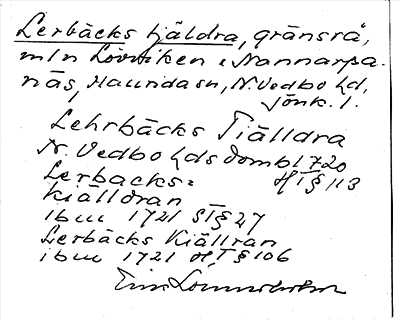 Lerbäcks kjäldra, gränsrå,
mln Lövviken o Nannarpa-
näs, Haurida sn, N. Vedbo hd,
Jönk. l.
Lehrbäcks Tiälldra
N. Vedbo hds domb 1720
HT § 113
Lerbacks=
kiälldran
ibm 1721 ST § 27
Lerbäcks Kiällran
ibm 1721 HT § 106